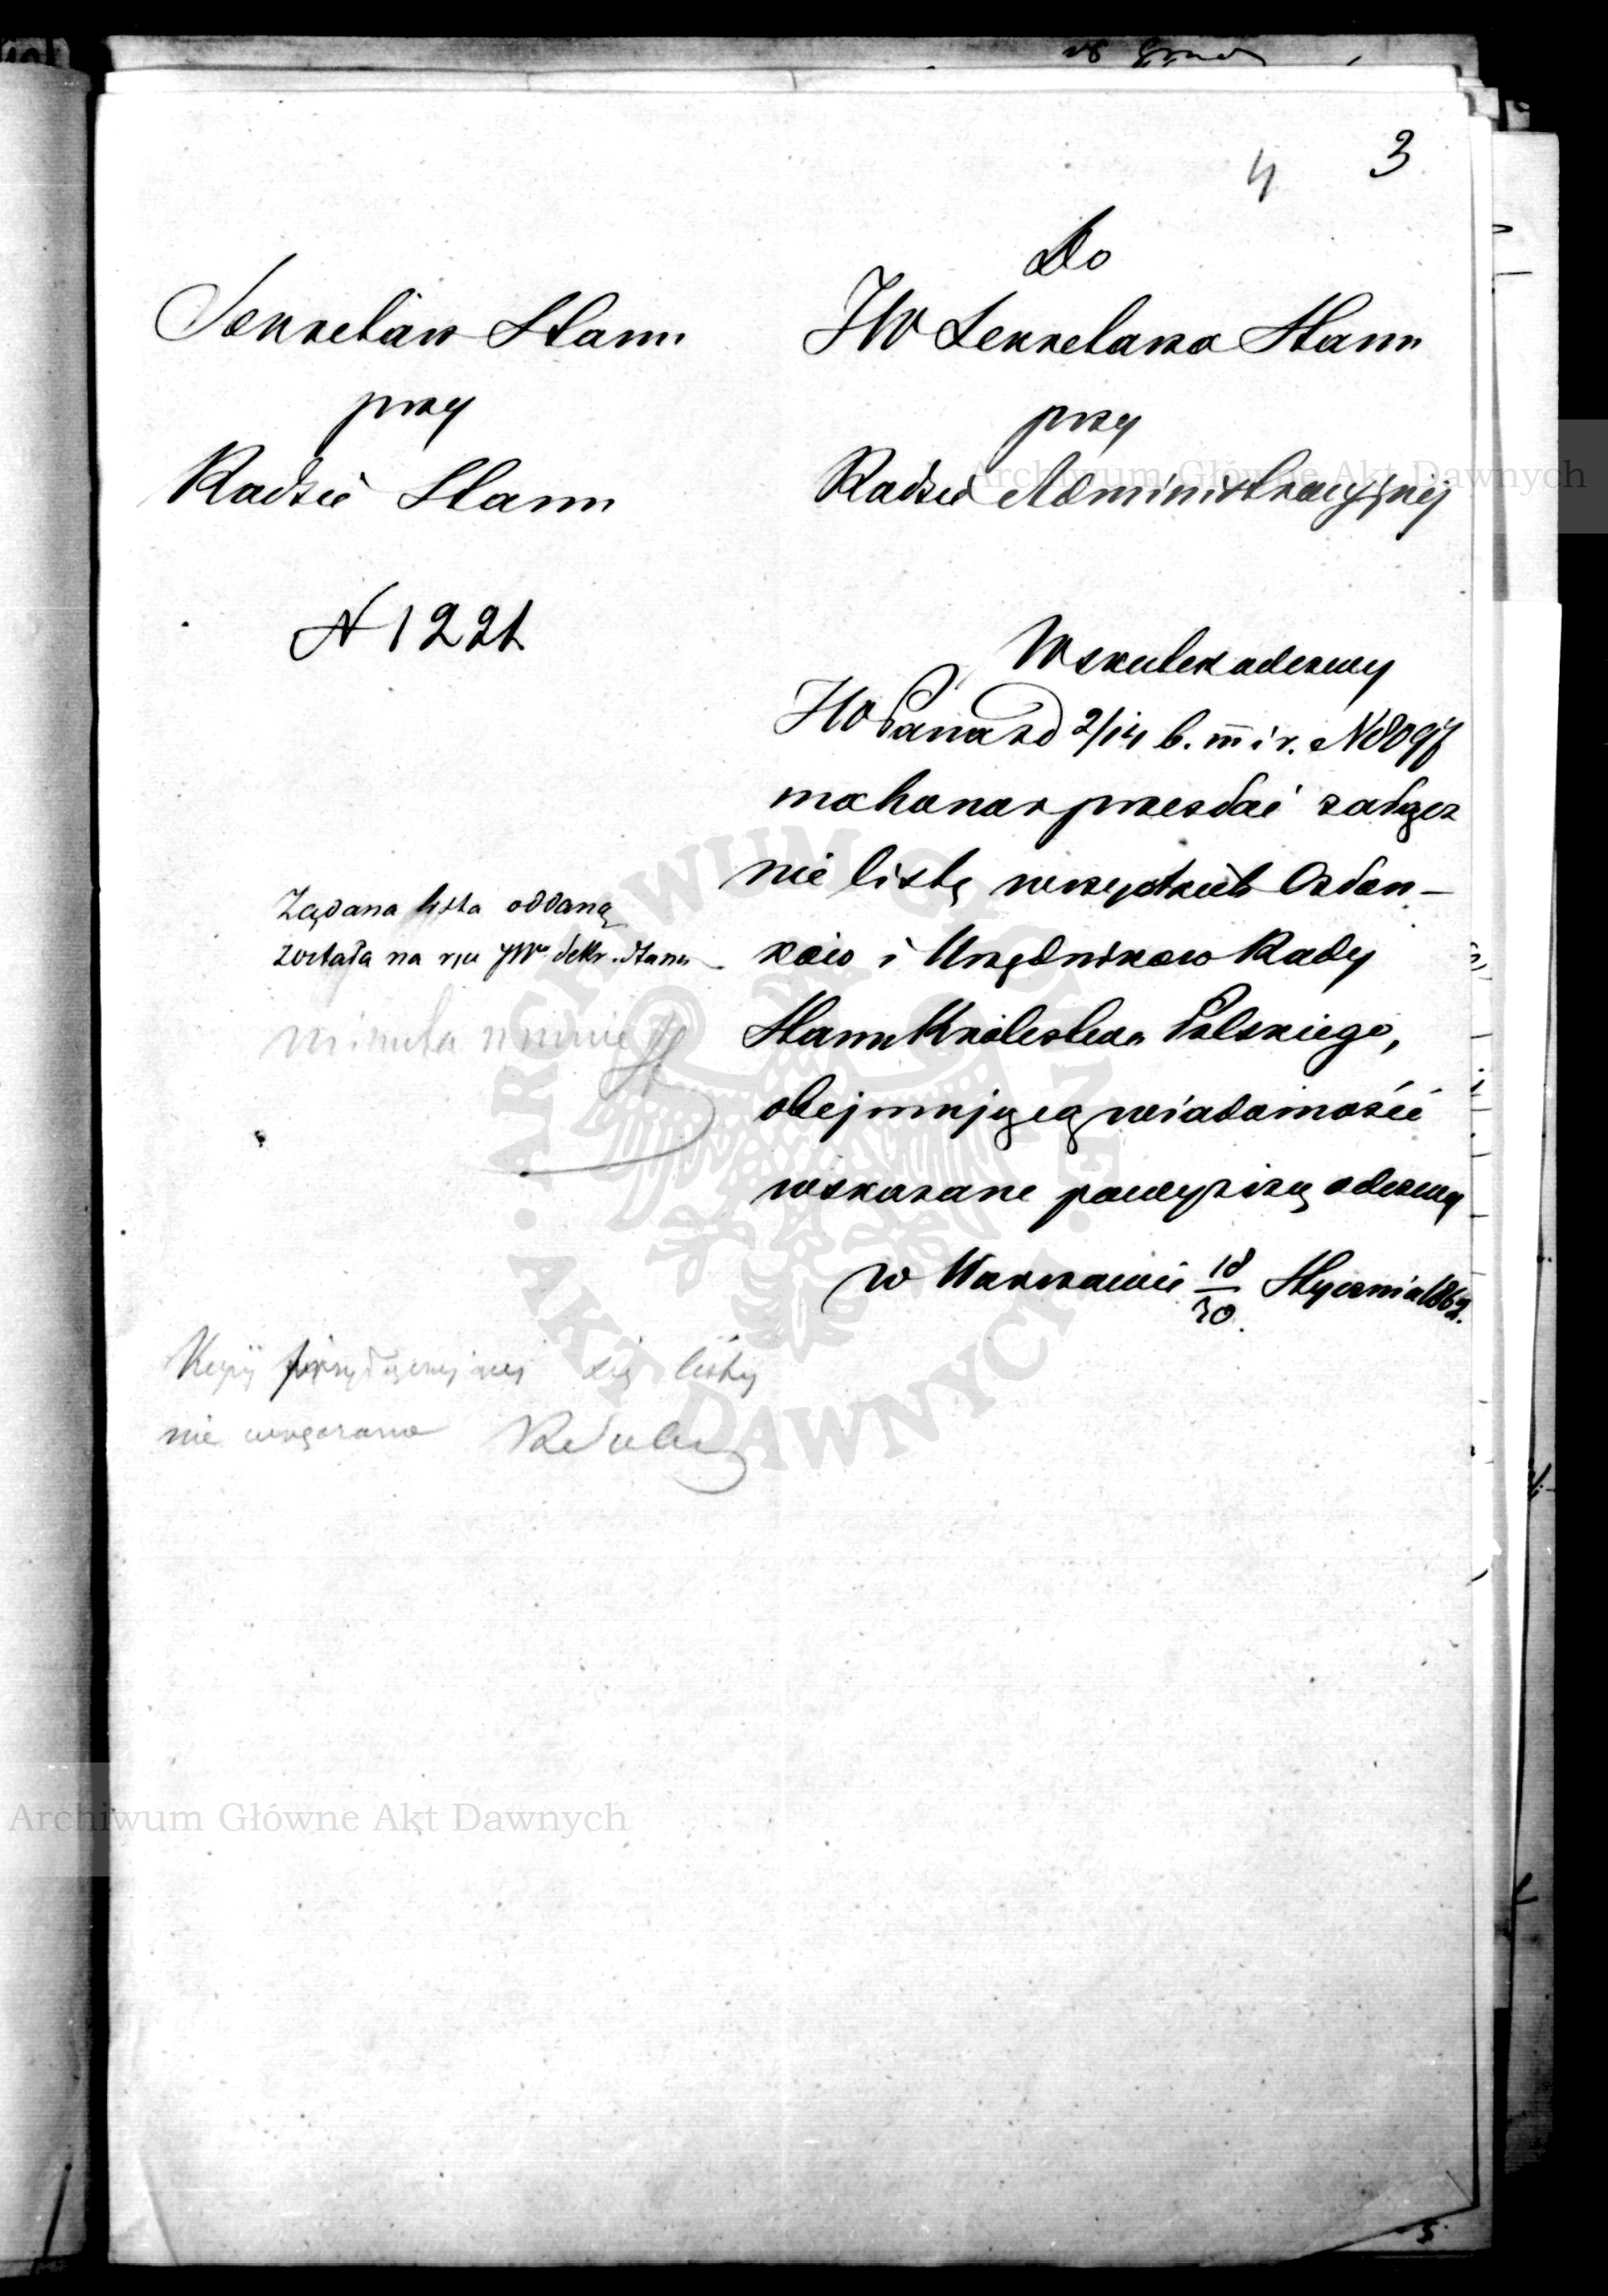 4 3
Sekretarz Stanu
przy
Radzie Stanu
N 1221
Do
JW Sekretarza Stanu
przy
Radzie Administracyjnej
Wskutek odezwy
JW Pana z d 2/14 b. m i r. N 809
mam honor przesłać załącz
nie listę wszystkich Człon-
ków i Urzędników Rady
Stanu Królestwa Polskiego,
obejmującą wiadomości
wskazane powyższą odezwą
w Warszawie 18/30 Stycznia 1862.
Żądana lista oddaną
została na ręce JWo Sekr. Stanu
minuta u mnie
Kopii przyłączonej
listy
nie
Archiwum Główne Akt Dawnych
ARCHIWUM GŁÓWNE AKT DAWNYCH
Archiwum Główne Akt Dawnych
5